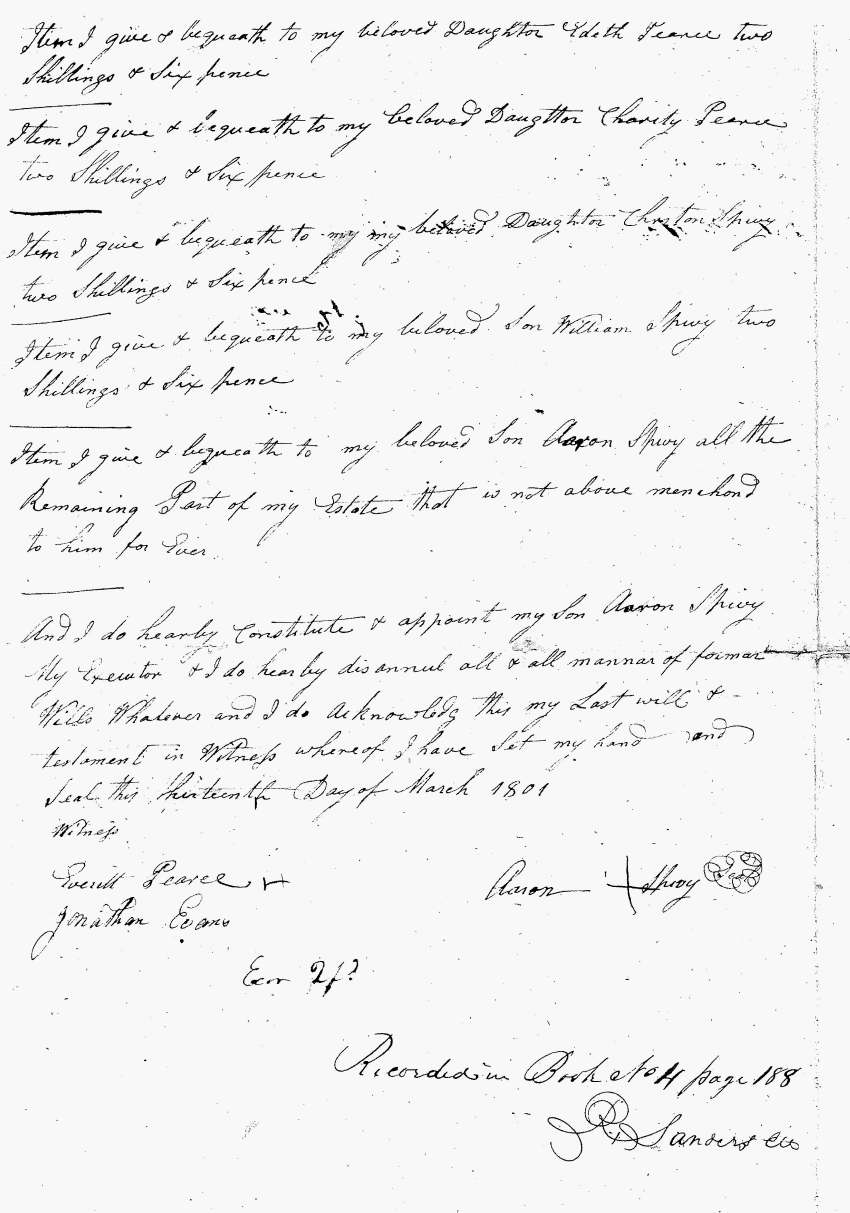 Item I give & bequeath to my beloved Daughter Edeth Pearce two
Shillings & Six pence
Item I give & bequeath to my beloved Daugttor Charity Pearce
two Shillings & Six pence
Item I give & bequeath to my my beloved Daughter Chrston Spivy
two Shillings & Six pence
Item I give & bequeath to my beloved Son William Spivy two
Shillings & Six pence
Item I give & bequeath to my beloved Son Aaron Spivy all the
Remaining Part of my Estate that is not above menchond
to him for Ever
And I do hearby Constitute & appoint my Son Aaron Spivy
My Executor & I do hearby disannul all & all mannar of formar
Wills Whatever and I do acknowledg this my Last will &
testament in Witness whereof I have Set my hand and
Seal this thirteenth Day of March 1801
Witness
Everitt Pearce +
Aaron + Spivy Seal
Jonathan Evans
Exr
Recorded in Book No 4 page 188
Sanders